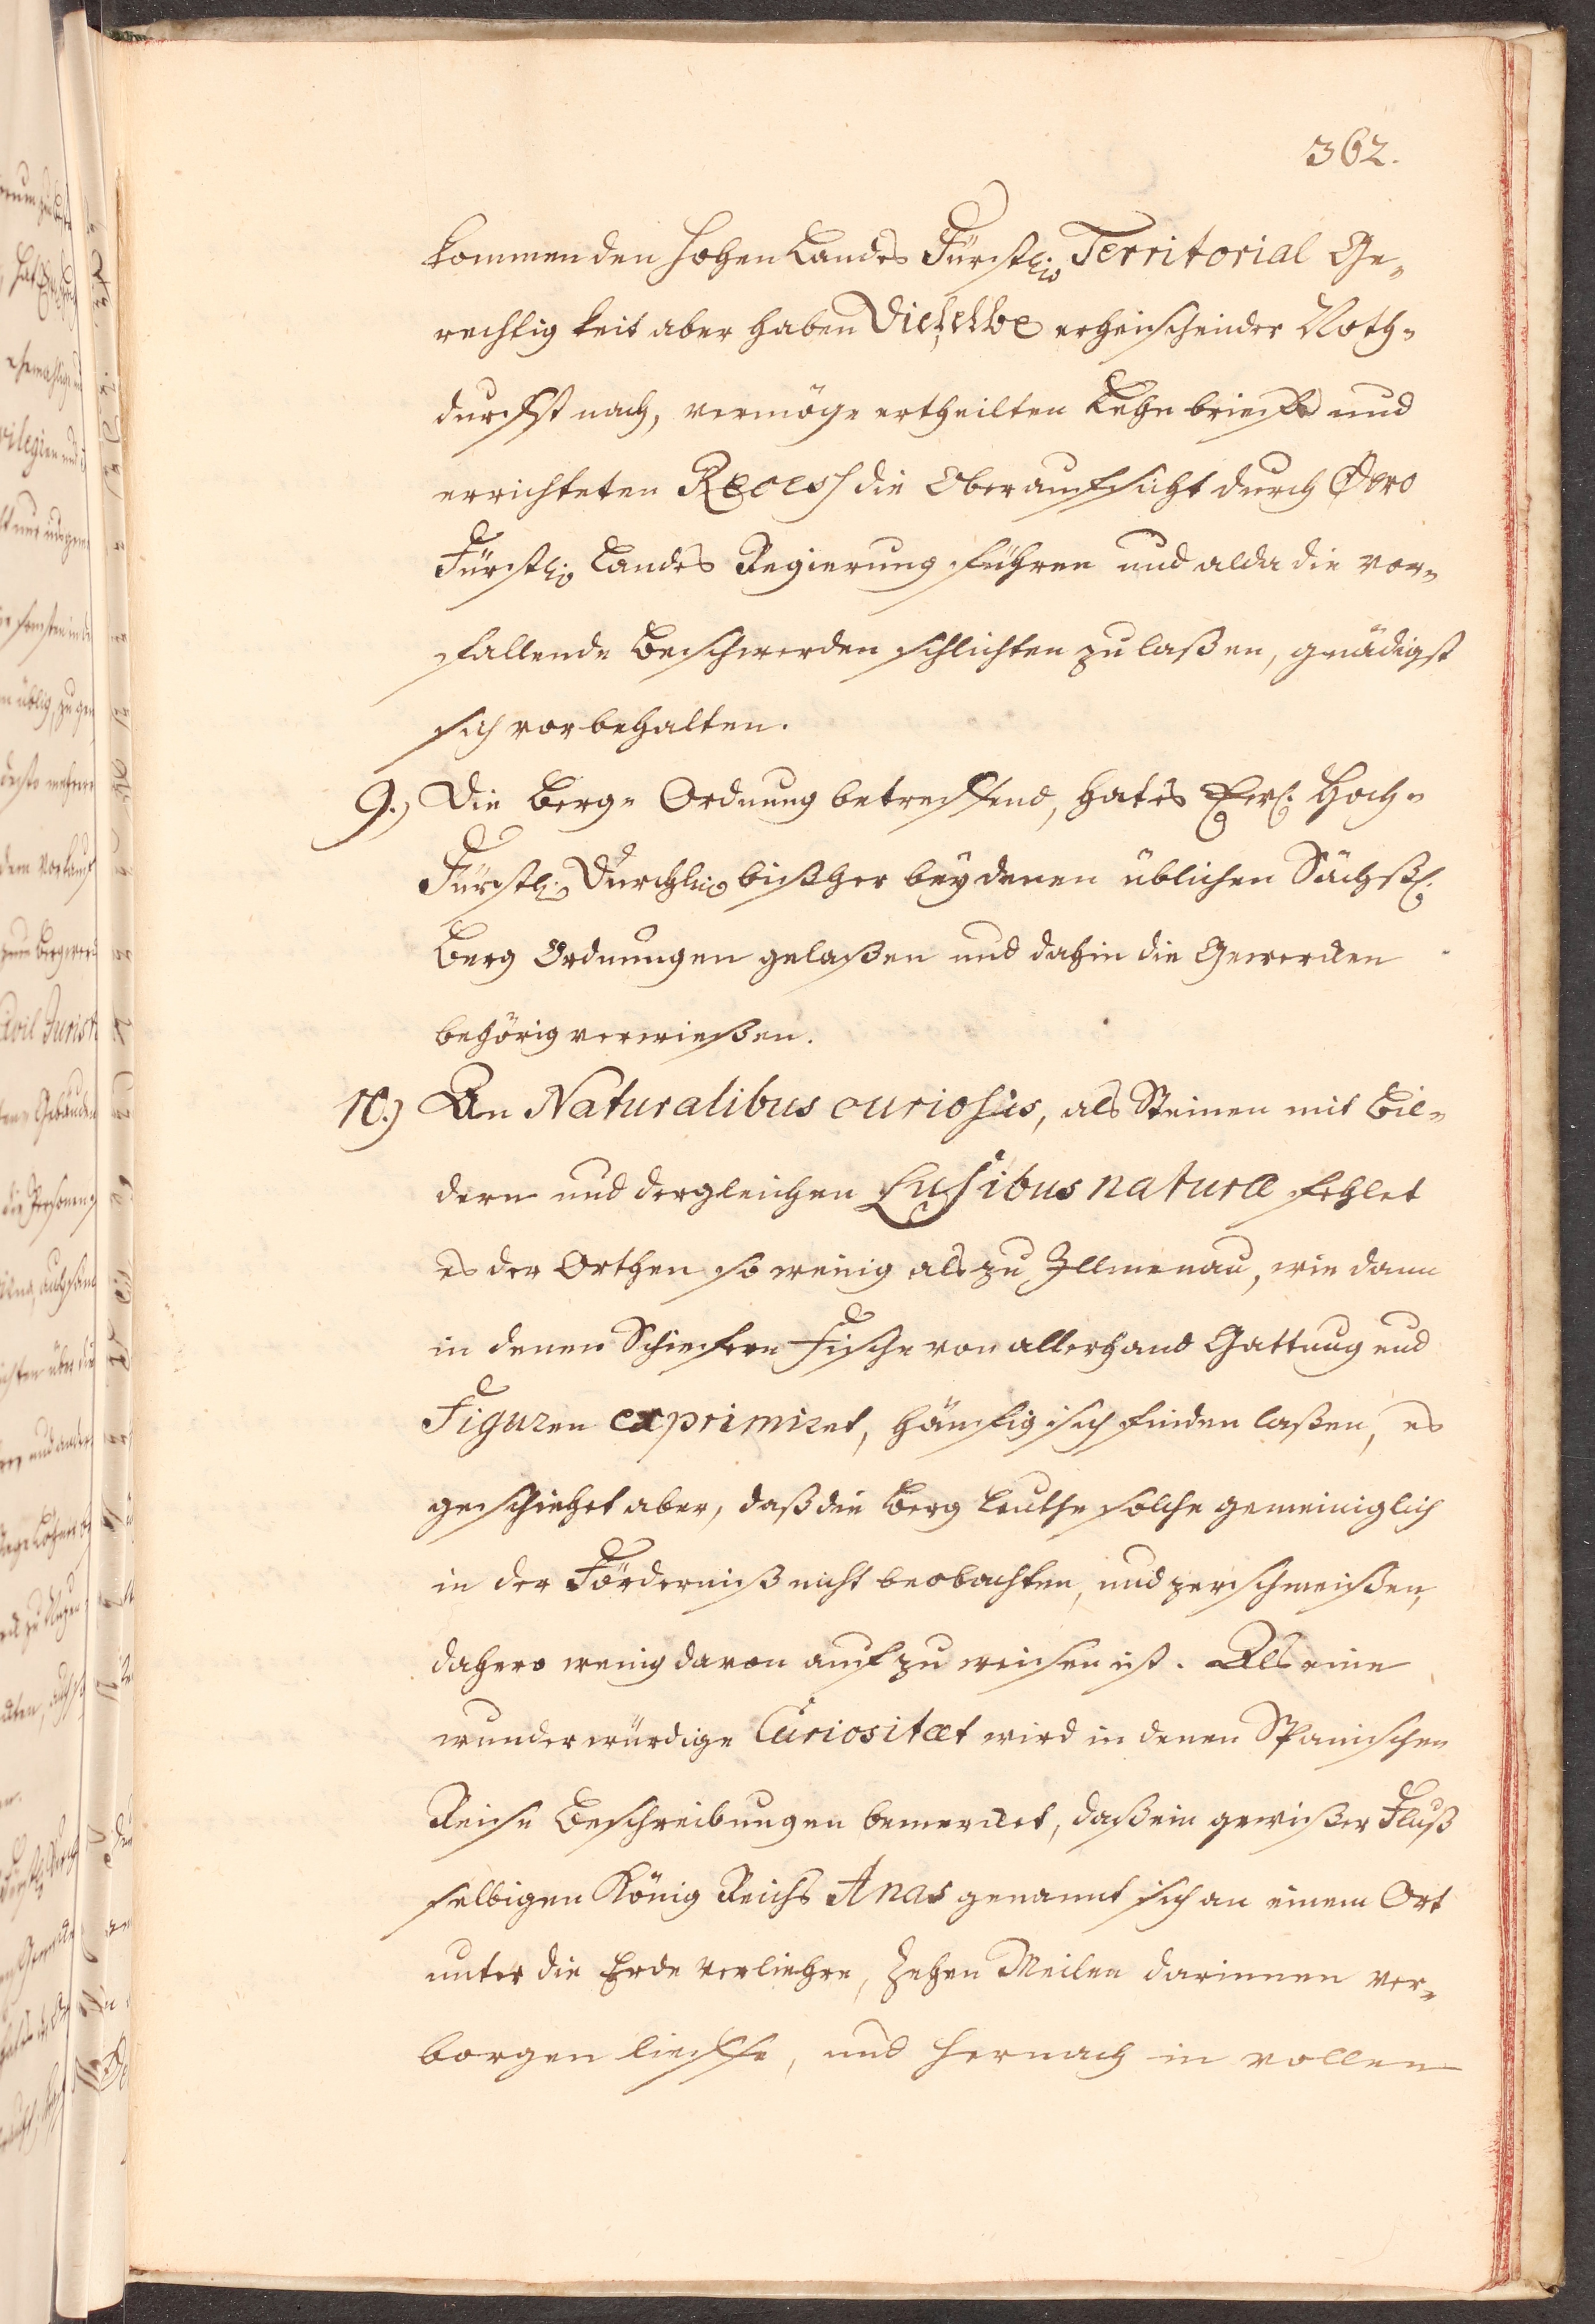 362.
kommenden hohen Landes Fürstl: Territorial Ge-
rechtigkeit aber haben Dieselbe erheischender Noth-
durfft nach, vermöge ertheilten Lehn brieffs und
errichteten Recess die Oberauffsicht durch Dero
Fürstl: Landes Regierung führen und alda die vor-
fallende Beschwerden schlichten zu laßen, gnädigst
sich vorbehalten.
9.) Die Berg- Ordnung betreffend, hat es Hoch-
Fürstl: Durchl: bißher bey denen üblichen Sächßl:
Berg Ordnungen gelaßen und dahin die Gewercken
behörig verwießen.
10.) An Naturalibus curiosis, als Steinen mit Bil-
dern und dergleichen Lusibus naturæ fehlet
es der Orthen so wenig als zu Illmenau, wie dann
in denen Schiefern Fische von allerhand Gattung und
Figuren exprimiret, häuffig sich finden laßen, es
geschiehet aber, daß die Berg Leuthe solche gemeiniglich
in der Förderniß nicht beobachten, und zerschmeißen,
dahero wenig davon auff zu weisen ist. Als eine
wunderwürdige Curiositæt wird in denen Spanischen
Reise Beschreibungen bemercket, daß ein gewißer Fluß
selbigen König Reichs Anas genannt sich an einem Ort
unter die Erde verliehre, Zehen Meilen darinnen ver-
borgen lieffe, und hernach in vollen